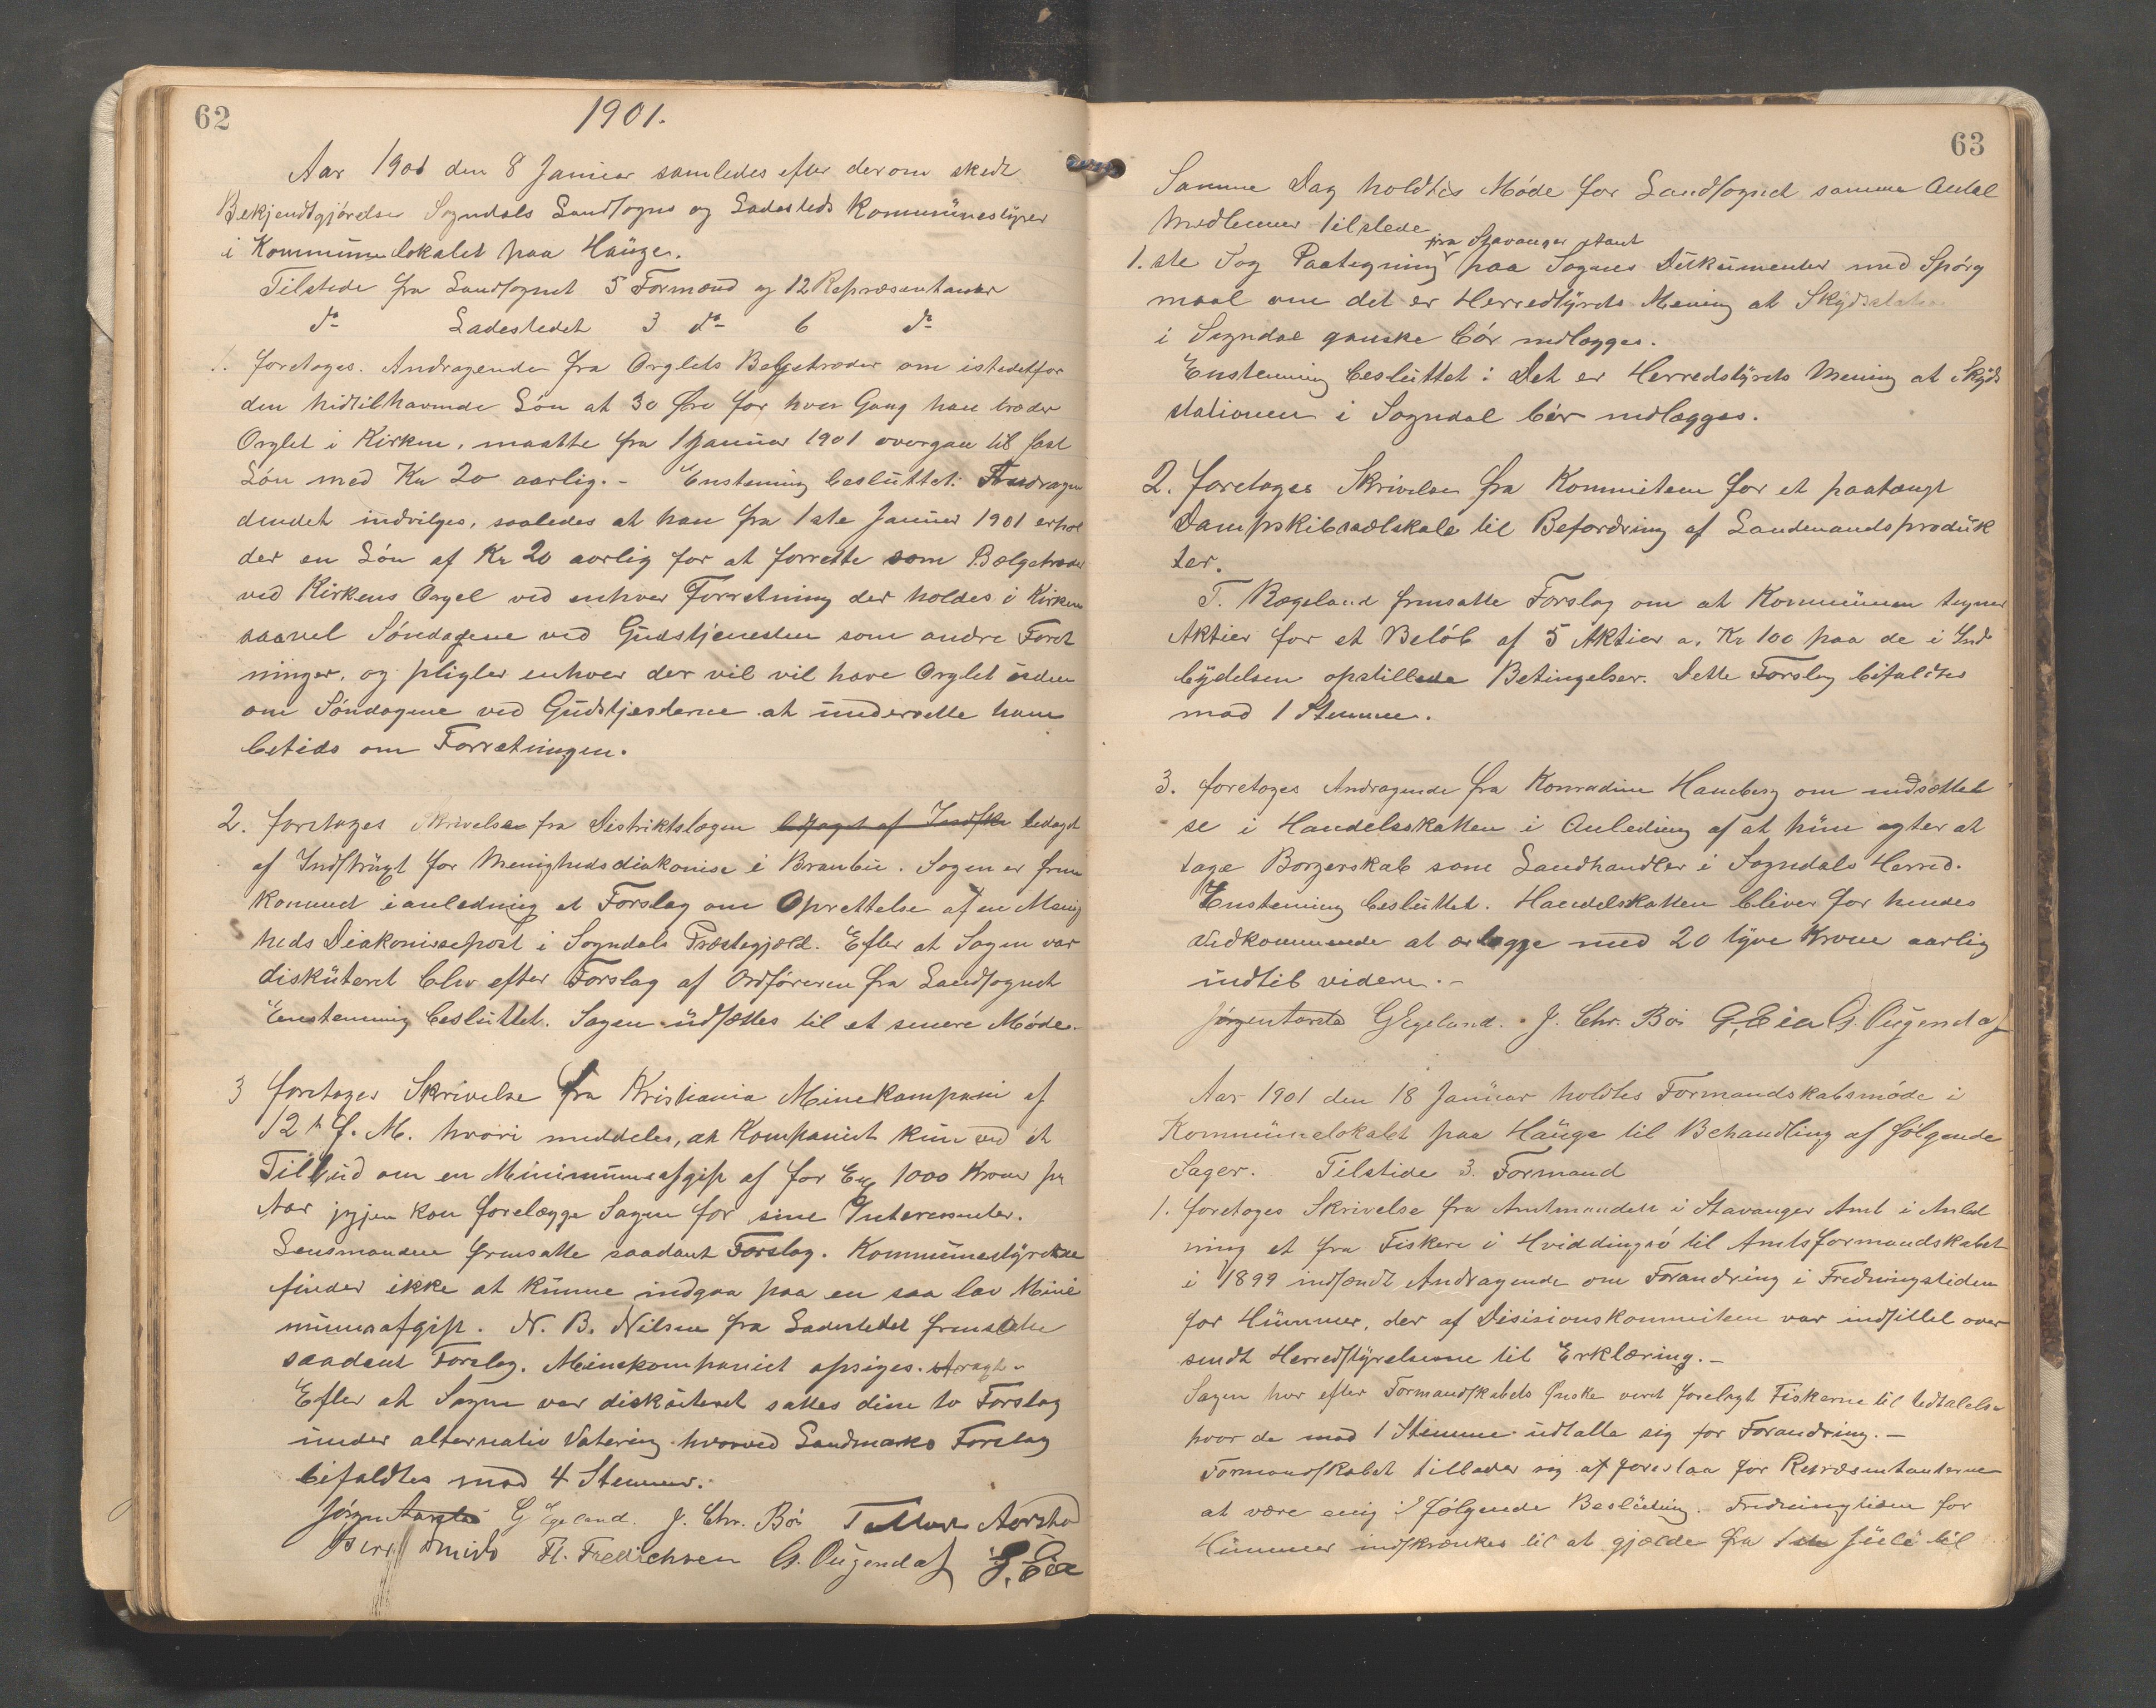 62
1901.
Aar 1901 den 8 Januar samledes efter derom skedt
Bekjendtgjørelse Sogndals Landsogns og Ladesteds Kommunestyrer
i Kommunelokalet paa Hauge.
Tilstede fra Landsognet 5 Formænd og 12 Repræsentanter
do Ladestedet 3 do 6 do
1. foretoges. Andragende fra Orglets Belgetræder om istedetfor
den hidtilhavende Løn at 30 Øre for hver Gang han træder
Orglet i Kirken, maatte fra 1 Januar 1901 overgaa til fast
Løn med Kr 20 aarlig. - Enstemmig besluttet: Andragen
dendet indvilges, saaledes at han fra 1ste Januar 1901 erhol
der en Løn af Kr 20 aarlig for at forrette som Bælgetræder
ved Kirkens Orgel ved enhver Forretning der holdes i Kirken
saavel Søndagene ved Gudstjenesten som andre Forret
ninger, og pligter enhver der vil vil have Orglet uden
om Søndagene ved Gudstjesterne at underrette ham
betids om Forretningen.
2. foretoges Skrivelse fra Distriktslægen ledsaget af Indstr ledaget
af Indstrugt for Menighedsdiakonise i Branbu. Sagen er frem
kommet i anledning et Forslag om Oprettelse af en Menig
heds Diakonissepost i Sogndals Præstegjæld. Efter at Sagen var
diskuteret blev efter Forslag af Ordføreren fra Landsognet
Enstemmig besluttet. Sagen udsættes til et senere Møde.
3 foretoges Skrivelse fra Kristiania Minekompani af
12te f. M. hvori meddeles, at Kompaniet kun ved et
Tilbud om en Minimumsafgift af for Ex 1000 Kroner pr
Aar igjen kan forelægge Sagen for sine Interessenter.
Lensmanden fremsatte saadant Forslag. Kommunestyrelse
finder ikke at kunne indgaa paa en saa lav Mini
mumsafgift. N. B. Nilsen fra Ladestedet fremsatte
saadant Forslag. Minekompaniet opsiges.
Efter at Sagen var diskuteret sattes disse to Forslag
under alternativ Votering hvorved Forslag
bifaldtes mod 4 Stemmer.
Jørgen Aarstad G Egeland. J. Chr. Bøe Aarstad
Fr. Fredrichsen G. Ougendal G. Eia
63
Samme Dag holdtes Møde for Landsognet samme Antal
Medlemmer tilstede
fra Stavanger Amt
1. ste Sag Paategning paa Sognes Dokumenter med Spørg
maal om det er Herredstyrets Mening at Skydsstation
i Sogndal ganske bør nedlægges.
Enstemmig besluttet: Det er Herredstyrets Mening at Skyds
stationen i Sogndal bør nedlægges.
2. foretoges Skrivelse fra Kommiteen for et paatænkt
Dampskibsselskab til Befordring af Landmandsproduk
ter.
T. Rægeland fremsatte Forslag om at Kommunen tegner
Aktier for et Beløb af 5 Aktier a. Kr 100 paa de i Ind
bydelsen opstillede Betingelser. Dette Forslag bifaldtes
mod 1 Stemme.
3. foretoges Andragende fra Konradine Haneberg om nedsættel
se i Handelsskatten i Anledning af at hun agter at
tage Borgerskab som Landhandler i Sogndals Herred.
Enstemmig besluttet. Handelskatten bliver for hendes
Vedkommende at erlægge med 20 tyve Krone aarlig
indtil videre. -
Jørgen Aarstad G Egeland. J. Chr. Bøe G. Eia G. Ougendal
Aar 1901 den 18 Januar holdtes Formandskabsmøde i
Kommunelokalet paa Hauge til Behandling af følgende
Sager. Tilstede 3 Formænd
1. foretoges Skrivelse fra Amtmanden i Stavanger Amt i Anled
ning et fra Fiskere i Hviddingsø til Amtsformandskabet
i 1899 indsendt Andragende om Forandring i Fredningstiden
for Hummer, der af Desisionskommiteen var indstillet over
sendt Herredstyrelserne til Erklæring. -
Sagen har efter Formandskabets Ønske været forelagt Fiskerne til Udtalelse
hvor de mod 1 Stemme udtalte sig for Forandring. -
Formandskabet tillader sig at foreslaa for Repræsentanterne
at være enig i følgende Beslutning. Fredningtiden for
Hummer indskrænkes til at gjælde fra 1ste Juli til